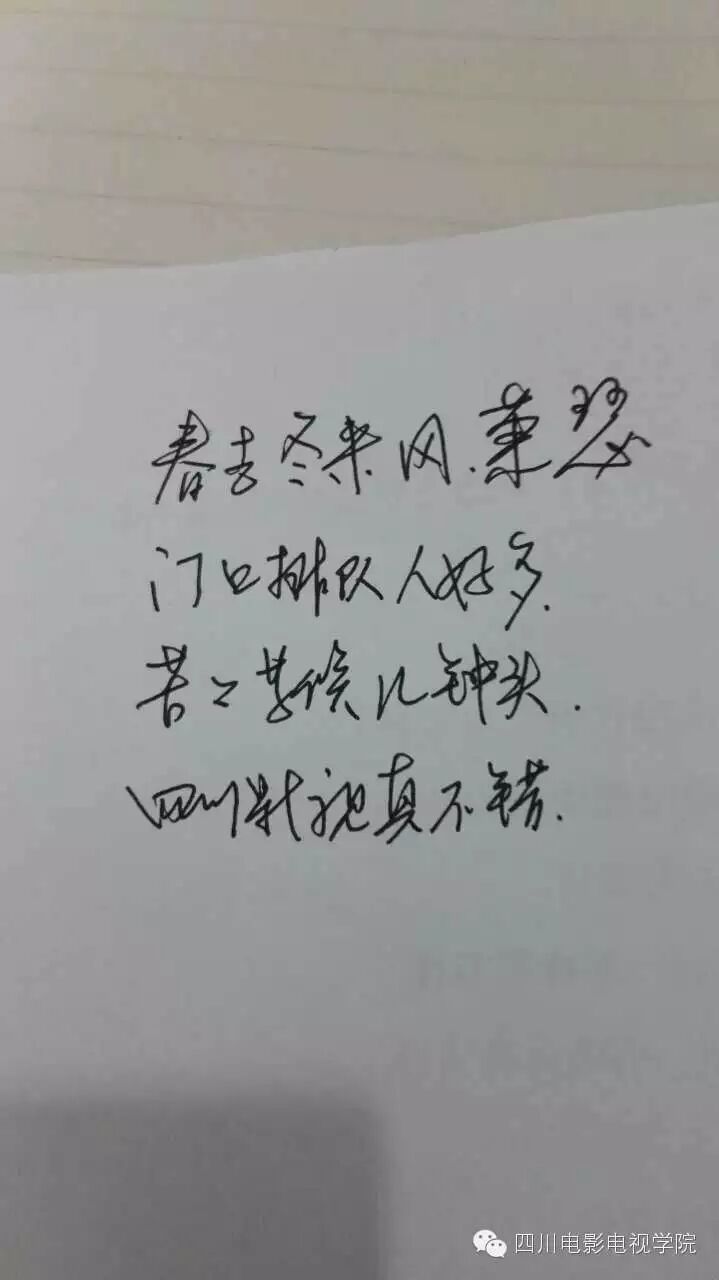 春去冬来风萧瑟
门口排队人好多.
苦々等候几钟头.
四川影视真不错.
四川电影电视学院